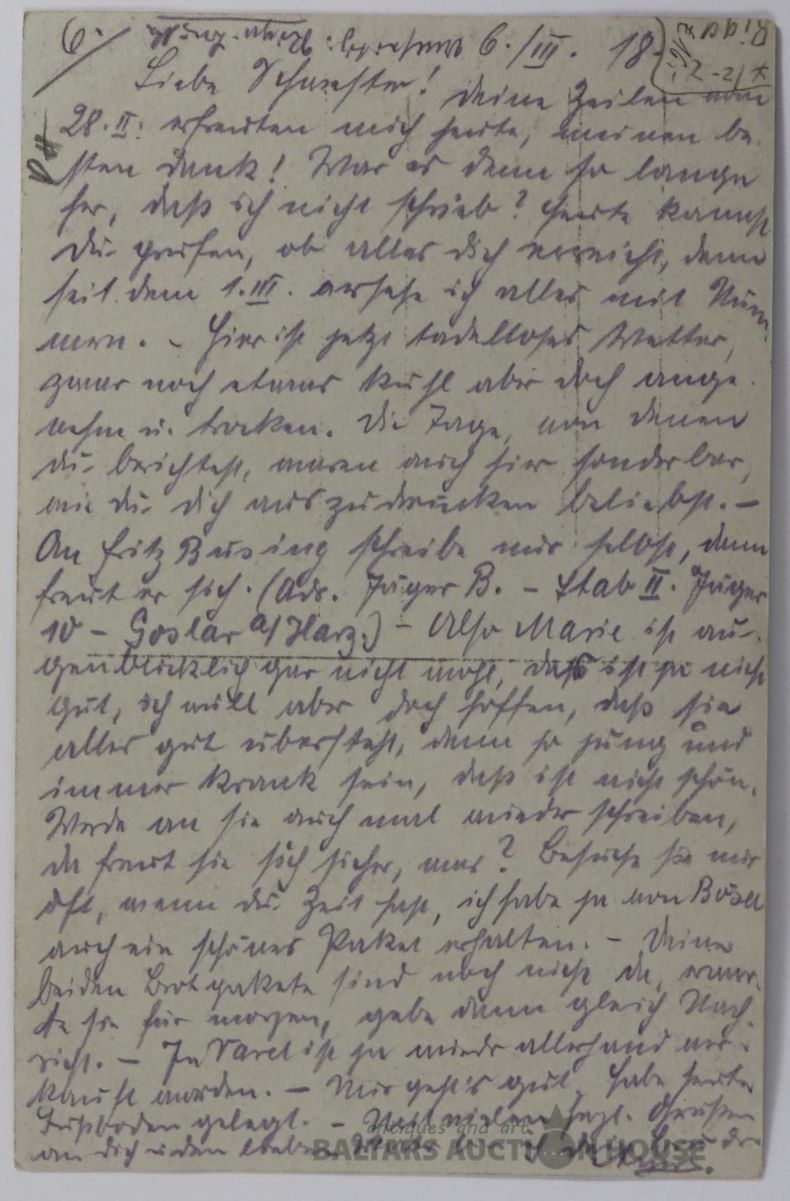 6. 6./III. 18.
Riga
Liebe Schwester! Deine Zeilen vom
28. II. erfreuten mich heute, meinen be-
sten Dank! War es denn so lange
her, daß ich nicht schrieb? Heute kannst
Du prüfen, ob alles Dich erreicht, denn
seit dem 1. III. versehe ich alles mit Num-
mern. – Hier ist jetzt tadelloses Wetter,
zwar noch etwas kühl aber doch ange-
nehm u. trocken. Die Tage, von denen
Du berichtest, waren auch hier sonderbar,
wie Du Dich auszudrücken beliebst. –
An Fritz Büsing schreibe nur selbst, dann
freut er sich. (Adr. Jäger B. – Stab II. Jäger
10 – Goslar a/Harz.) – Also Marie ist au-
genblicklich gar nicht wohl, daß ist ja nicht
gut, ich will aber doch hoffen, daß sie
alles gut übersteht, denn so jung und
immer krank sein, daß ist nicht schön.
Werde an sie auch mal wieder schreiben,
da freut sie sich sicher, was? Besuche sie nur
oft, wenn Du Zeit hast, ich habe ja von
auch ein schönes Paket erhalten. – Deine
beiden Brotpakete sind noch nicht da, erwar-
te sie für morgen, gebe dann gleich Nach-
richt. – In Varel ist ja wieder allerhand ver-
kauft worden. – Mir geht's gut, habe heute
Fußboden gelegt. – vielen herzl. Grüßen
an Dich u. den lieben
antiques and art
BALTARS AUCTION HOUSE